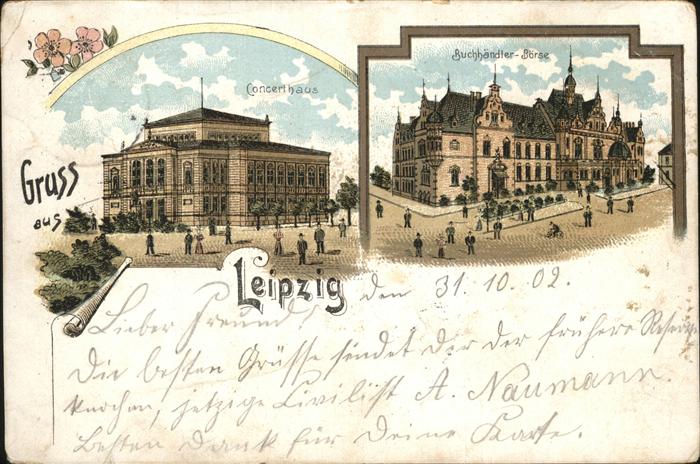 Concerthaus
Buchhändler-Börse
Gruss
aus
Leipzig den 31. 10. 02.
Lieber Freund!
Die besten Grüsse sendet Dir der frühere Reserve
knochen, jetzige Civilist A. Naumann.
Besten Dank für Deine Karte.